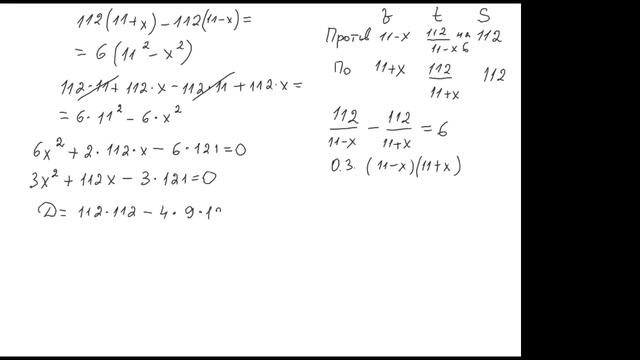 112(11+x) - 112(11-x) =
= 6(11² - x²)
112·11 + 112·x - 112·11 + 112·x =
= 6·11² - 6·x²
6x² + 2·112·x - 6·121 = 0
3x² + 112x - 3·121 = 0
D = 112·112 - 4·9·1
v t S
Против 11-x 112/(11-x) на 6 112
По 11+x 112/(11+x) 112
112/(11-x) - 112/(11+x) = 6
О.З. (11-x)(11+x)